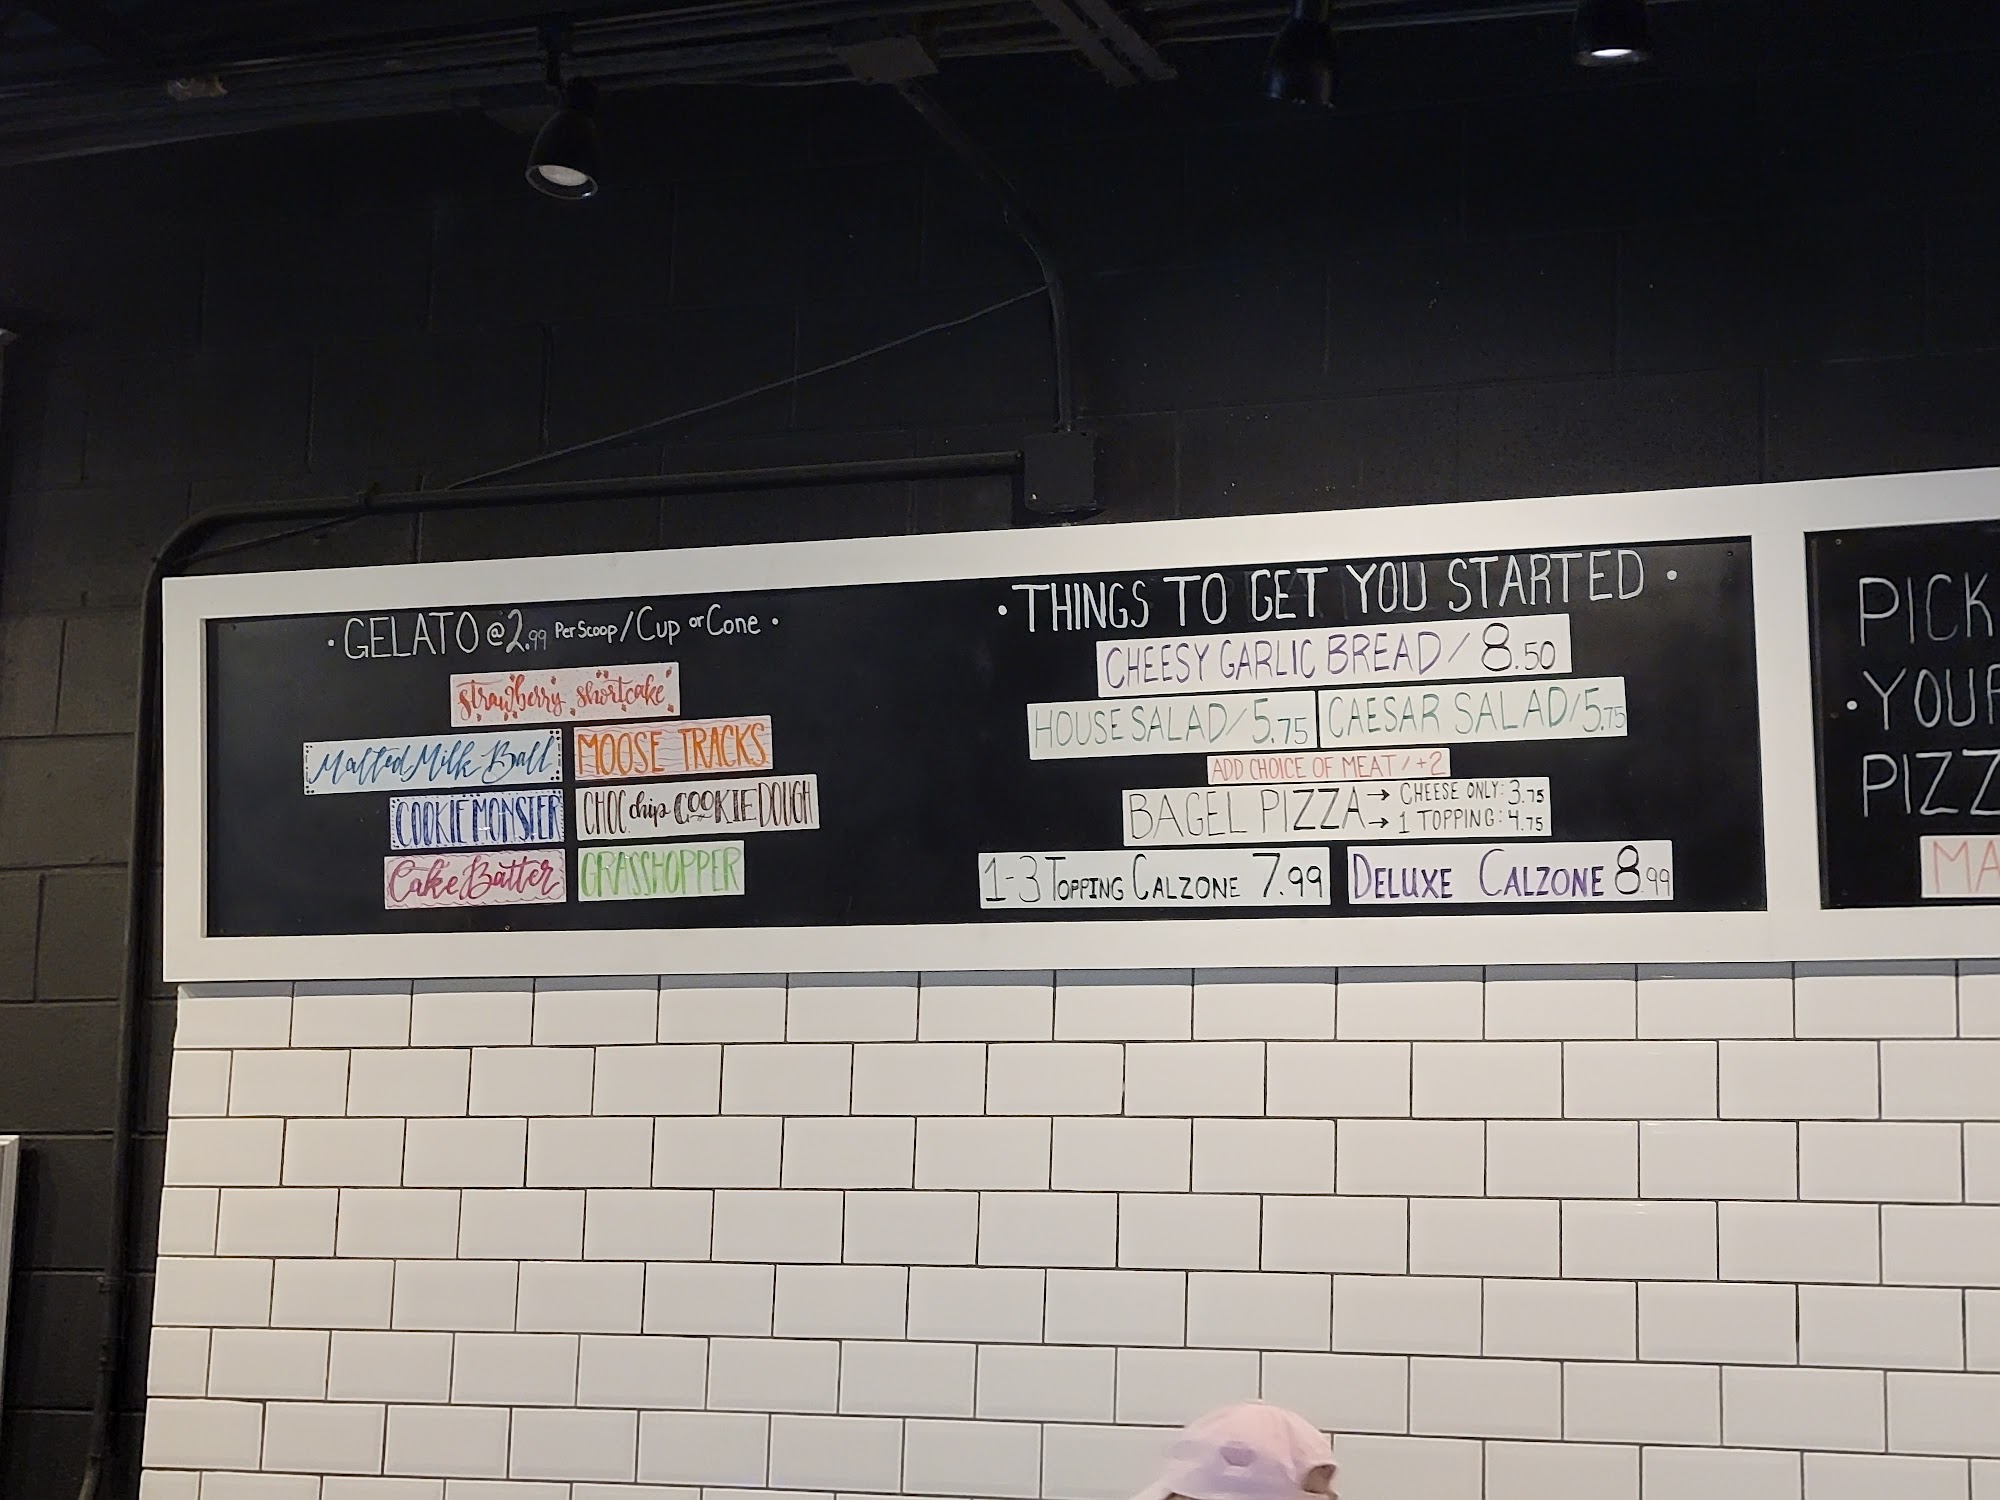 · GELATO @ 2.99 Per Scoop / Cup or Cone ·
strawberry shortcake
Malted Milk Ball
MOOSE TRACKS
COOKIE MONSTER
CHOC chip COOKIE DOUGH
Cake Batter
GRASSHOPPER
· THINGS TO GET YOU STARTED ·
CHEESY GARLIC BREAD / 8.50
HOUSE SALAD / 5.75
CAESAR SALAD / 5.75
ADD CHOICE OF MEAT / +2
BAGEL PIZZA → CHEESE ONLY: 3.75
→ 1 TOPPING: 4.75
1-3 TOPPING CALZONE 7.99
DELUXE CALZONE 8.99
PICK
· YOUR
PIZZ
MA